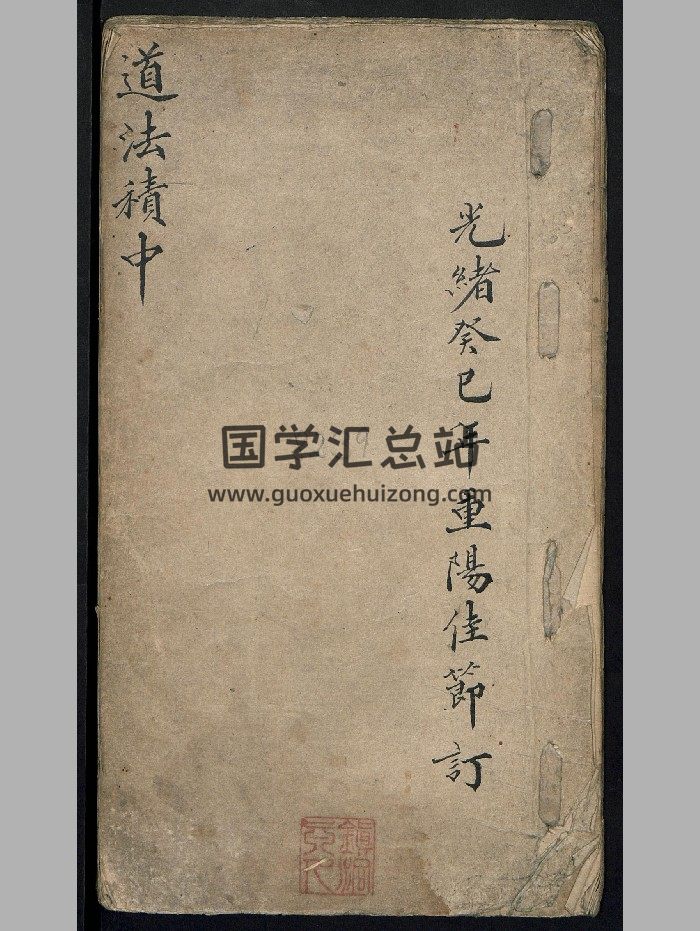 光緒癸巳年重陽佳節訂
道法積中
国学汇总站
www.guoxuehuizong.com